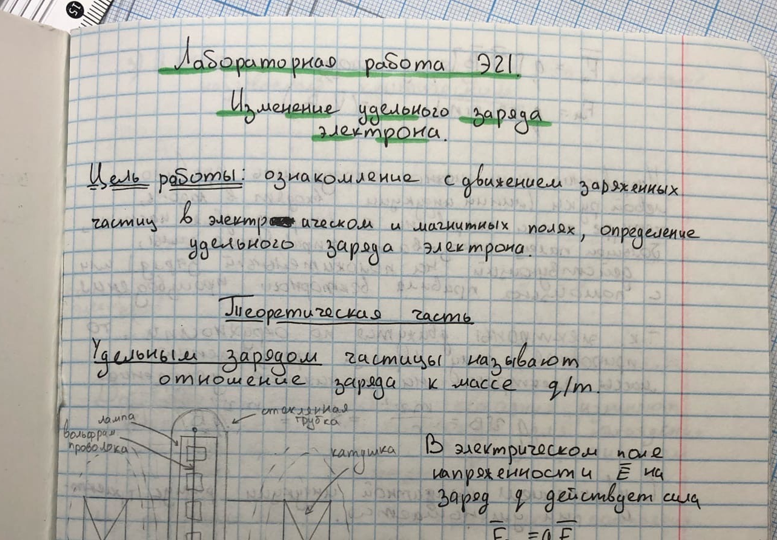 15
Лабораторная работа Э21
Изменение удельного заряда
электрона.
Цель работы: ознакомление с движением заряженных
частиц в электрическом и магнитных полях, определение
удельного заряда электрона.
Теоретическая часть
Удельным зарядом частицы называют
отношение заряда к массе q/m.
лампа
вольфрам
проволока
стеклянная
трубка
катушка
В электрическом поле
напряженности E̅ на
заряд q действует сила